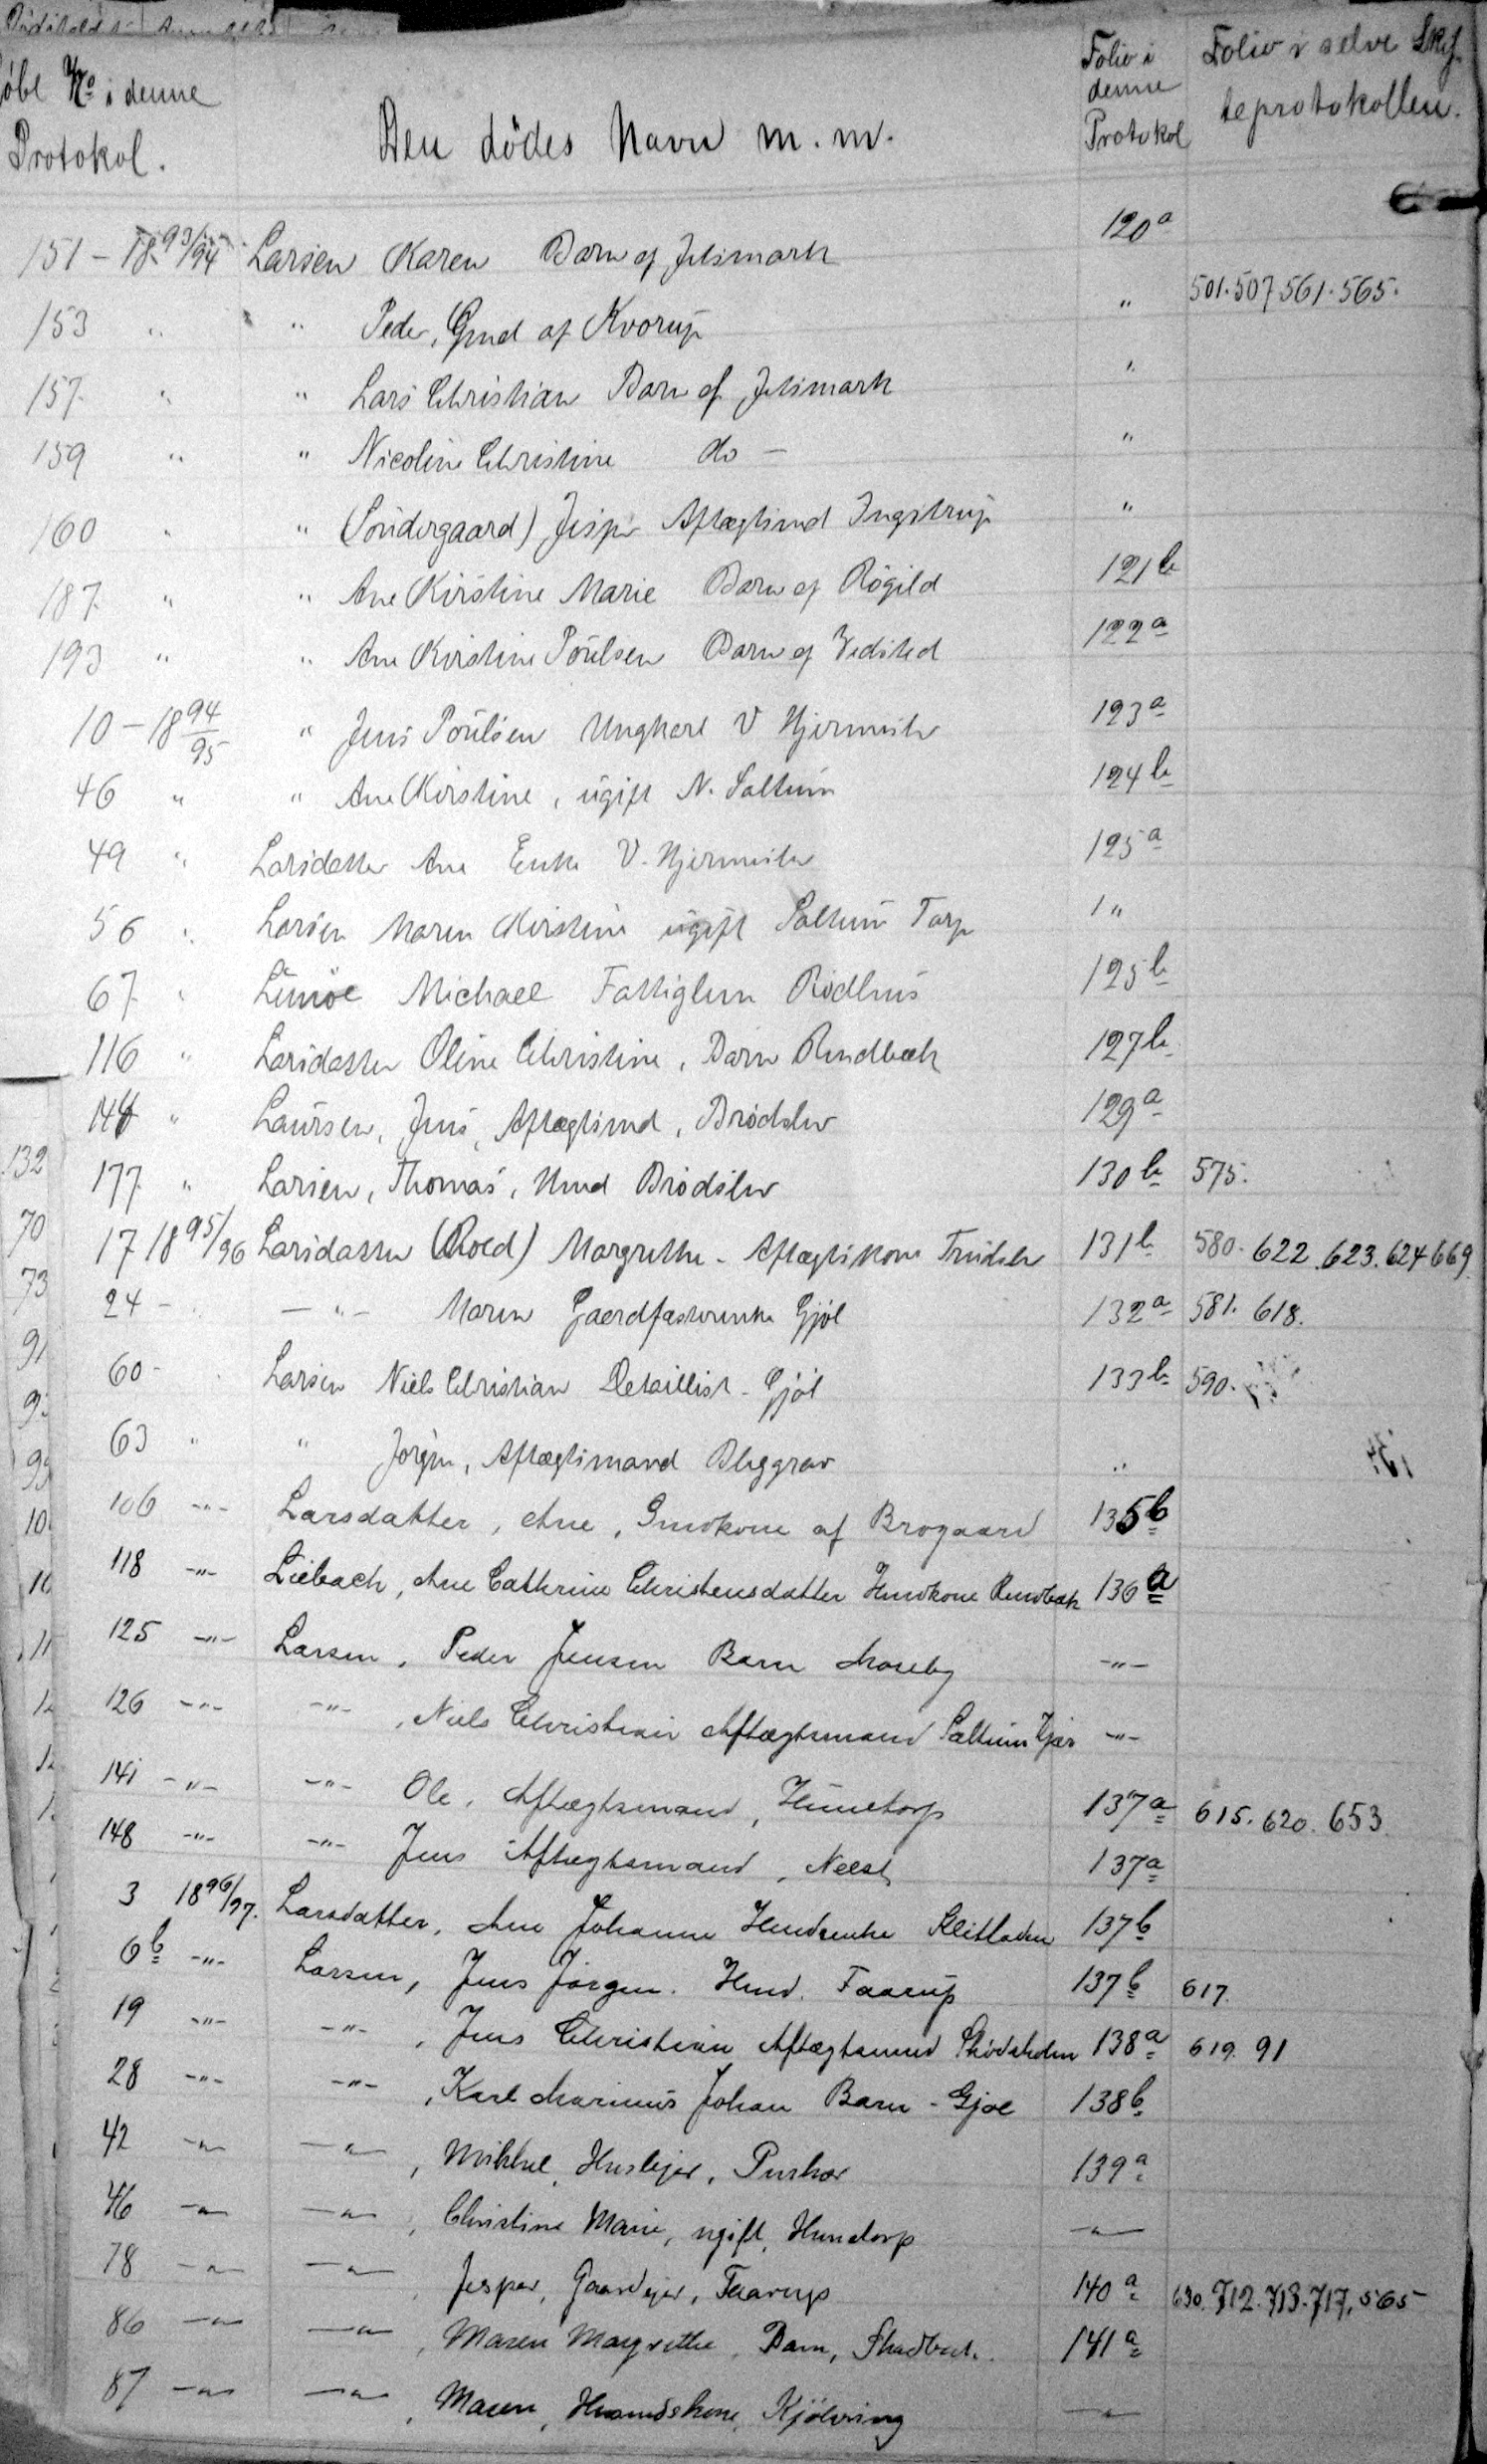 øbl No i denne Protokol.
Den dødes Navn m.m.
Folio i denne Protokol
Folio i selve Skif-
teprotokollen.
151 - 18 93/94 Larsen Karen Barn af Jetsmark 120 a
153 " " Peder, Gmd af Kvorup " 501. 507. 561. 565.
157. " " Lars Christian Barn af Jetsmark "
159 " " Nicoline Christine do - "
160 " " (Søndergaard) Jesper Aftægtsmd Ingstrup "
187. " " Ane Kirstine Marie Barn af Røgild 121 b
193 " " Ane Kirstine Poulsen Barn af Vedsted 122 a
10 - 18 94/95 " Jens Poulsen Ungkarl V Hjermitslv 123 a
46 " " Ane Kirstine, ugift N. Saltum 124 b
49 " Larsdatter Ane Enke V. Hjermitslv 125 a
56 " Larsen Maren Kirstine ugift Saltum Torp "
67. " Michael Fattiglem Rødhus 125 b
116 " Larsdatter Oline Christine, Barn Rendbæk 127 b
" Laursen, Jens, Aftægtsmd, Brødslv 129 a
177 " Larsen, Thomas, Hmd Brødslv 130 b 575.
17 18 95/96 Larsdatter (Roed) Margrethe - Aftægtskone Trudslv 131 b 580. 622. 623. 624 669.
24 - " - " - Maren Gjøl 132 a 581. 618.
60 - Larsen Niels Christian Detaillist - Gjøl 133 b 590.
63 " " Jørgen, Aftægtsmand Blæggrav "
106 - " - Larsdatter, Ane, Gmdkone af Brogaard 135 b
118 - " - Liebach, Ane Cathrine Christensdatter Hmdkone Rendbæk 136 a
125 - " - Larsen, Peder Jensen Barn Moseby - " -
126 - " - - " - , Niels Christian Aftægtsmand Saltum Kjær - " -
141 - " - - " - Ole, Aftægtsmand, Hunetorp 137 a 615. 620. 653
148 - " - - " - Jens Aftægtsmand, Neest 137 a
3 18 96/97. Larsdatter, Ane Johanne Hmdsenke Klitladen 137 b
6 b - " - Larsen, Jens Jørgen. Hmd. Faarup 137 b 617.
19 - " - - " - , Jens Christian Aftægtsmd 138 a 619. 91
28 - " - - " - , Karl Marinus Johan Barn - Gjøl 138 b
42 - " - - " - , Mikkel, Huslejer, Purkær 139 a
46 - " - - " - , Christine Marie, ugift, Hunetorp - " -
78 - " - - " - , Jesper, Gaardejer, Faarup 140 a 630. 712. 713. 717. 565
86 - " - - " - , Maren Margrethe, Barn, 141 a
87 - " - - " - , Maren, Husmandskone, Kjølvring - " -
132
70
73
91